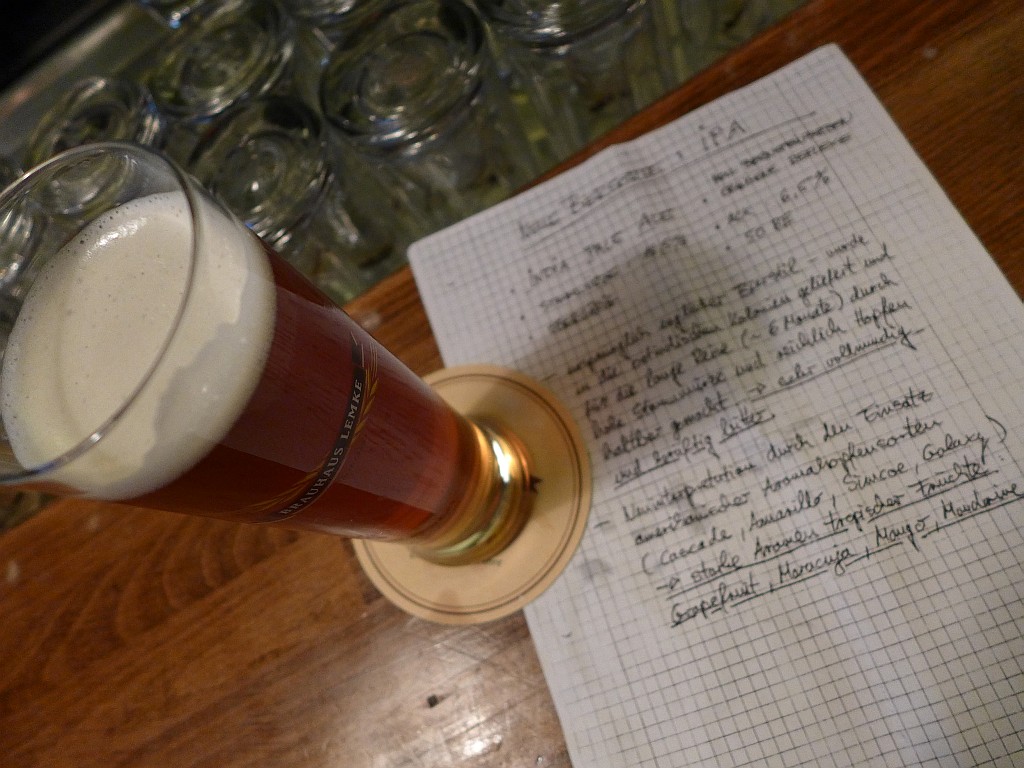 BRAUHAUS LEMKE
IPA
INDIA PALE ALE
ALK. 6,5%
50 BE
ursprünglich englischer Bierstil – wurde
in die ostindischen Kolonien geliefert und
für die lange Reise (~ 6 Monate) durch
hohe Stammwürze und reichlich Hopfen
haltbar gemacht → sehr vollmundig
und kräftig bitter
– Neuinterpretation durch den Einsatz
amerikanischer Aromahopfensorten
(Cascade, Amarillo, Simcoe, Galaxy)
→ starke Aromen tropischer Früchte:
Grapefruit, Maracuja, Mango, Mandarine